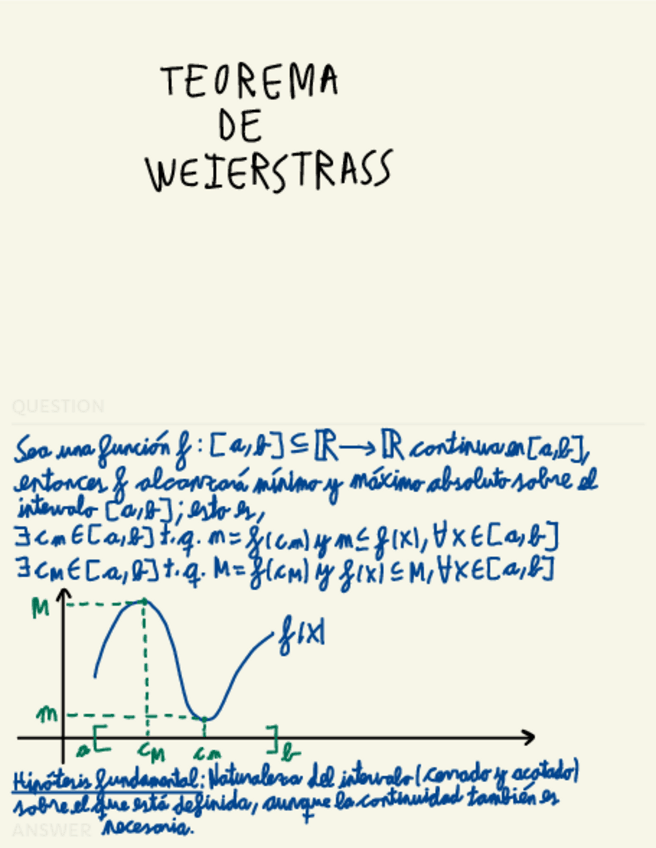 TEOREMA
DE
WEIERSTRASS
QUESTION
Sea una función f: [a,b] ⊆ ℝ → ℝ continua en [a,b],
entonces f alcanzará mínimo y máximo absoluto sobre el
intervalo [a,b]; esto es,
∃ cm ∈ [a,b] t.q. m = f(cm) y m ≤ f(x), ∀x ∈ [a,b]
∃ cM ∈ [a,b] t.q. M = f(cM) y f(x) ≤ M, ∀x ∈ [a,b]
M
f(x)
m
a [ cM cm ] b
Hipótesis fundamental: Naturaleza del intervalo (cerrado y acotado)
sobre el que está definida, aunque la continuidad también es
necesaria.
ANSWER